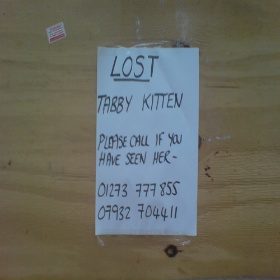 LOST
TABBY KITTEN
PLEASE CALL IF YOU
HAVE SEEN HER-
01273 777855
07932 704411